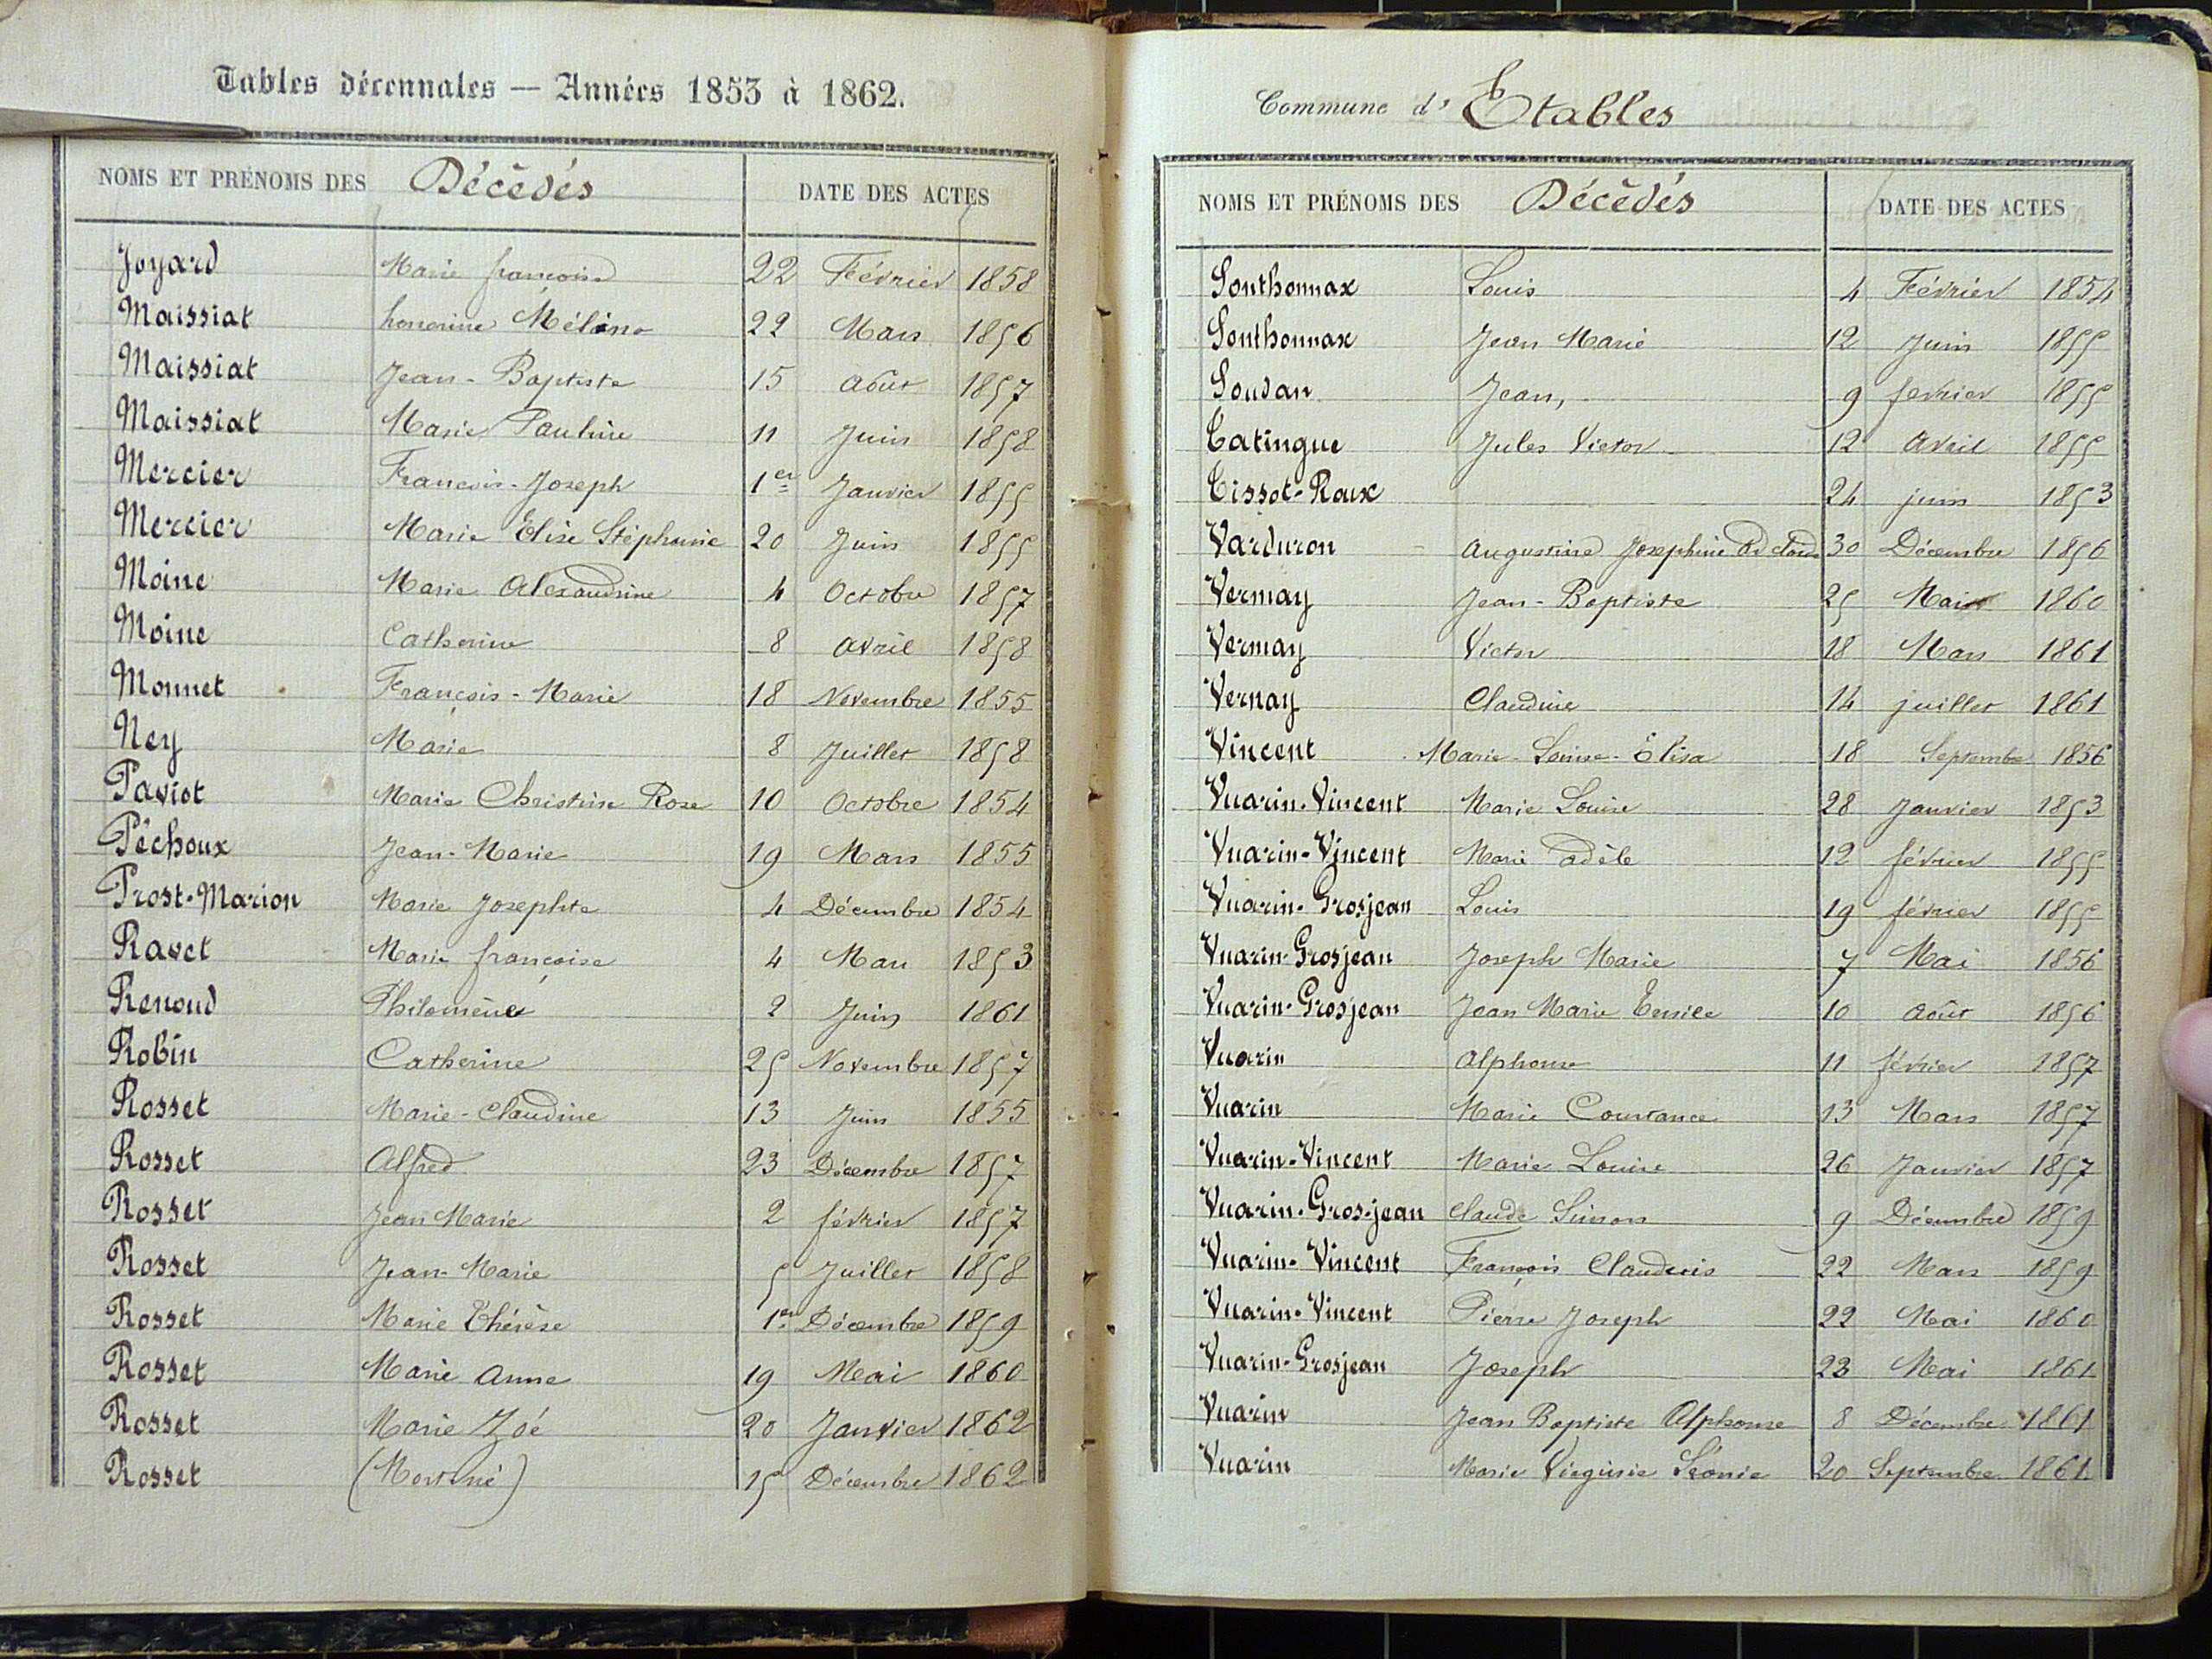 Tables décennales — Années 1853 à 1862.
NOMS ET PRÉNOMS DES Décédés DATE DES ACTES
Joyard Marie françoise 22 Février 1858
Maissiat honorine Mélina 22 Mars 1856
Maissiat Jean-Baptiste 15 août 1857
Maissiat Marie Pauline 11 Juin 1858
Mercier François-Joseph 1er Janvier 1855
Mercier Marie Elise Stéphanie 20 Juin 1855
Moine Marie Alexandrine 4 Octobre 1857
Moine Catherine 8 avril 1858
Monnet François-Marie 18 Novembre 1855
Ney Marie 8 Juillet 1858
Paviot Marie Christine Rose 10 Octobre 1854
Péchoux Jean-Marie 19 Mars 1855
Prost-Marion Marie Josephte 4 Décembre 1854
Ravet Marie françoise 4 Mars 1853
Renoud Philomène 2 Juin 1861
Robin Catherine 25 Novembre 1857
Rosset Marie-Claudine 13 Juin 1855
Rosset Alfred 23 Décembre 1857
Rosset Jean Marie 2 février 1857
Rosset Jean-Marie 5 Juillet 1858
Rosset Marie Thérèse 1er Décembre 1859
Rosset Marie Anne 19 Mai 1860
Rosset Marie Zoé 20 Janvier 1862
Rosset (Mort né) 15 Décembre 1862
Commune d' Etables
NOMS ET PRÉNOMS DES Décédés DATE DES ACTES
Sonthonnax Louis 4 Février 1854
Sonthonnax Jean Marie 12 Juin 1855
Soudan Jean, 9 fevrier 1855
Tatingue Jules Victor 12 avril 1855
Tissot-Roux 24 juin 1853
Varduron Augustine Josephine 30 Décembre 1856
Vermay Jean-Baptiste 25 Mai 1860
Vermay Victor 18 Mars 1861
Vernay Claudine 14 juillet 1861
Vincent Marie-Louise-Elisa 18 Septembre 1856
Vuarin-Vincent Marie Louise 28 Janvier 1853
Vuarin-Vincent Marie adèle 12 février 1855
Vuarin-Grosjean Louis 19 février 1855
Vuarin-Grosjean Joseph Marie 7 Mai 1856
Vuarin-Grosjean Jean Marie 10 août 1856
Vuarin Alphonse 11 février 1857
Vuarin Marie Constance 13 Mars 1857
Vuarin-Vincent Marie Louise 26 Janvier 1857
Vuarin-Gros-jean Claude Simon 9 Décembre 1859
Vuarin-Vincent François 22 Mars 1859
Vuarin-Vincent Pierre Joseph 22 Mai 1860
Vuarin-Grosjean Joseph 23 Mai 1861
Vuarin Jean Baptiste Alphonse 8 Décembre 1861
Vuarin Marie Virginie Léonie 20 Septembre 1861